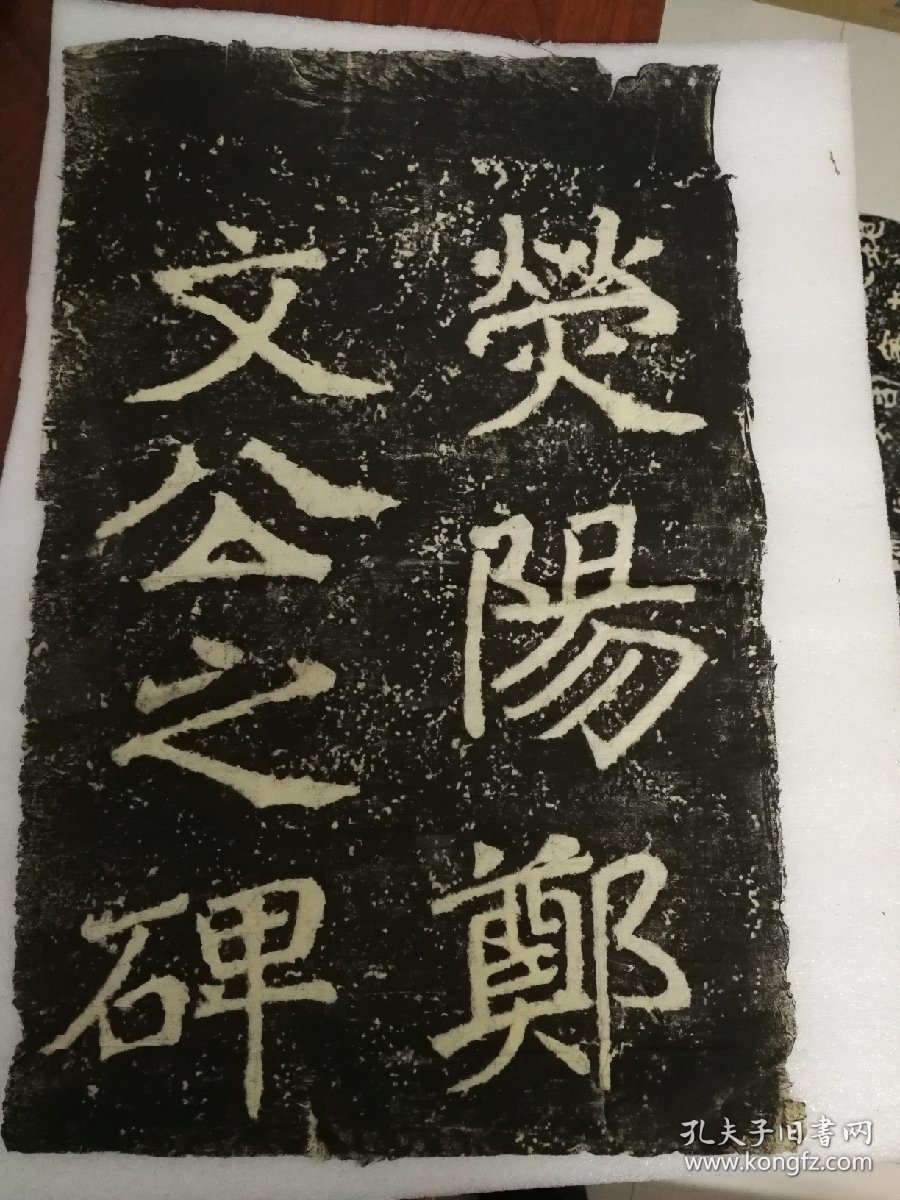 熒陽鄭
文公之碑
孔夫子旧書网
www.kongfz.com